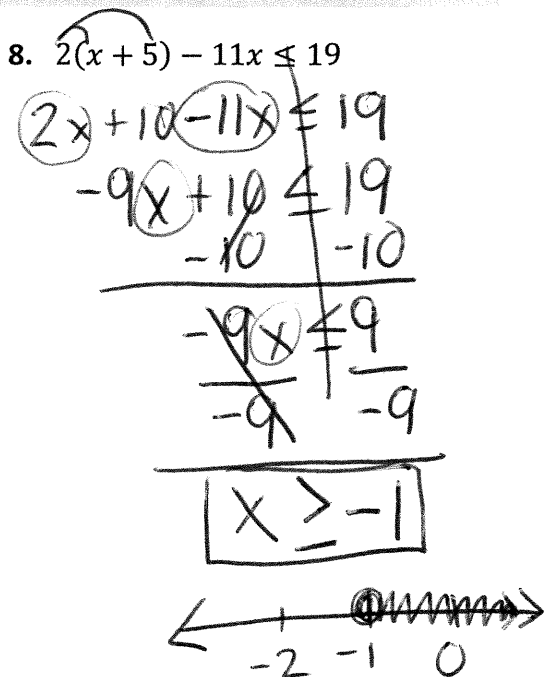 8. 2(x + 5) − 11x ≤ 19
2x + 10 − 11x ≤ 19
-9x + 10 ≤ 19
-10 -10
-9x ≤ 9
-9 -9
x ≥ -1
-2 -1 0